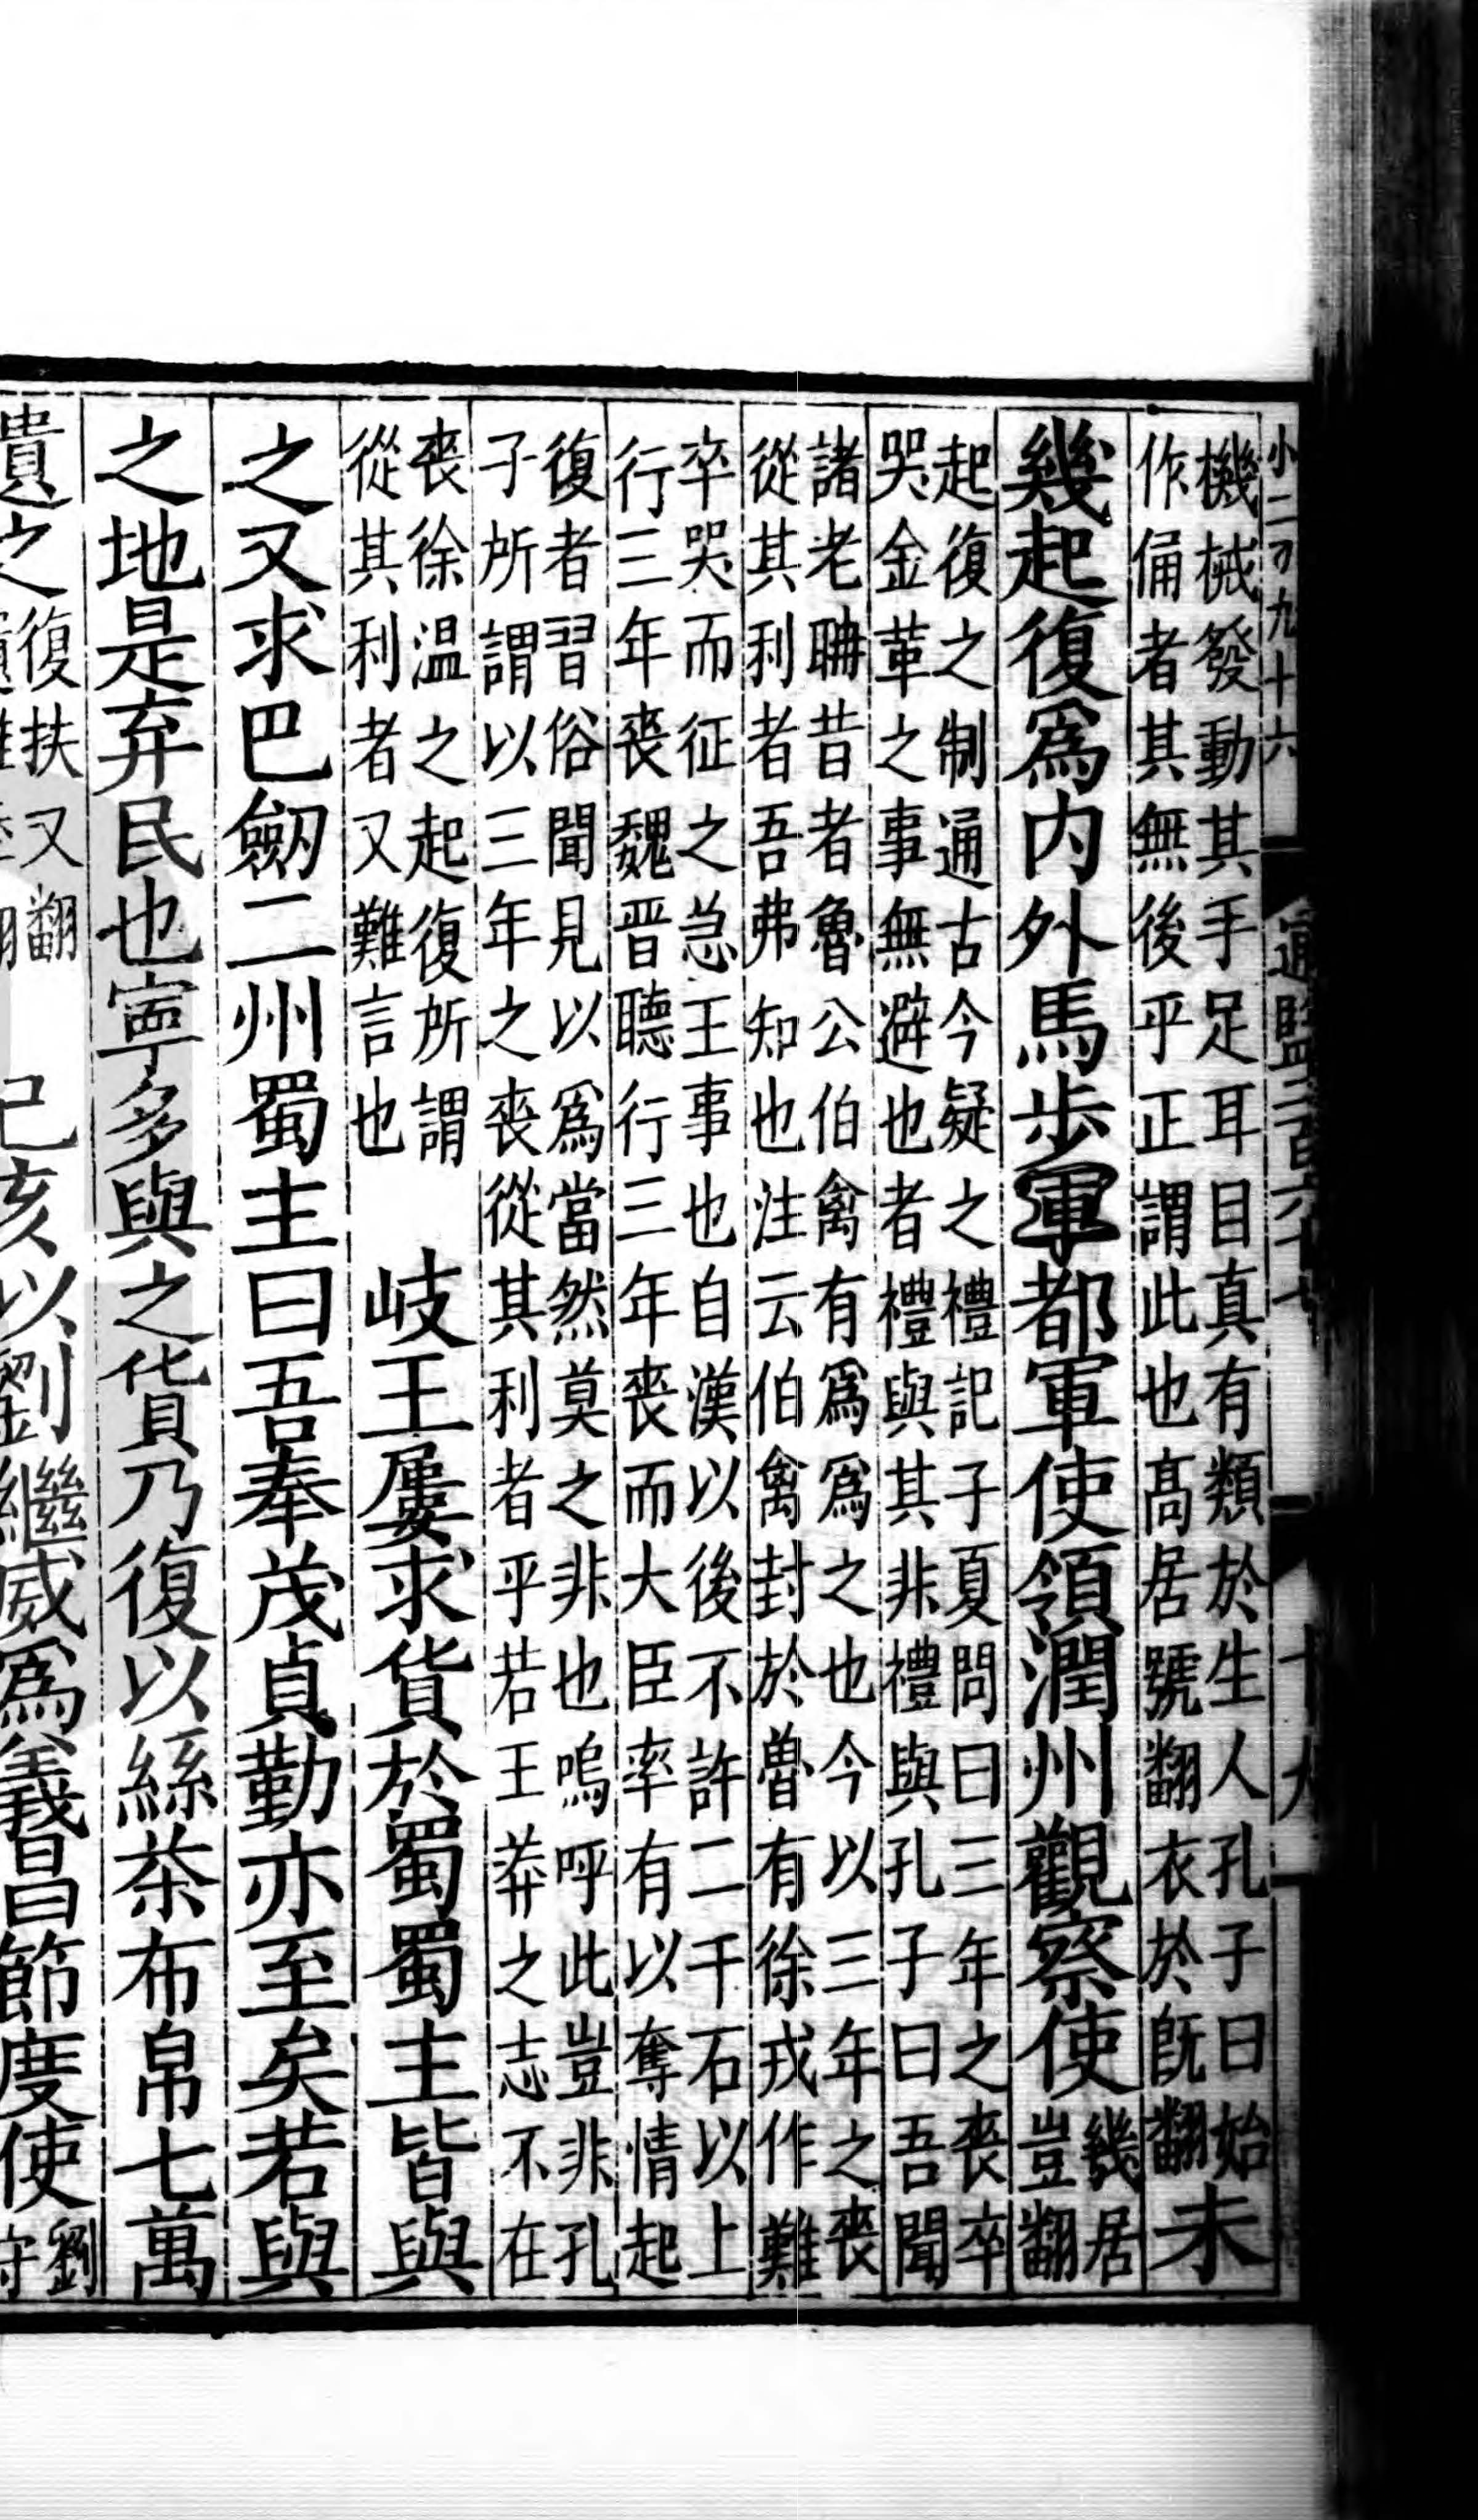 小二百九十六 通鑑二百六十七 十九
機械發動其手足耳目真有類於生人孔子曰始
作俑者其無後乎正謂此也高居號翻衣於既翻
未
幾起復爲内外馬步軍都軍使領潤州觀察使
幾居
豈翻
起復之制通古今疑之禮記子夏問曰三年之喪卒
哭金革之事無避也者禮與其非禮與孔子曰吾聞
諸老聃昔者魯公伯禽有爲爲之也今以三年之喪
從其利者吾弗知也注云伯禽封於魯有徐戎作難
卒哭而征之急王事也自漢以後不許二千石以上
行三年喪魏晋聽行三年喪而大臣率有以奪情起
復者習俗聞見以爲當然莫之非也嗚呼此豈非孔
子所謂以三年之喪從其利者乎若王莽之志不在
喪徐温之起復所謂
從其利者又難言也
岐王屢求貨於蜀蜀主皆與
之又求巴劒二州蜀主曰吾奉茂貞勤亦至矣若與
之地是弃民也寜多與之貨乃復以絲茶布帛七萬
遺之
復扶又翻
己亥以劉繼威爲義昌節度使
劉
守